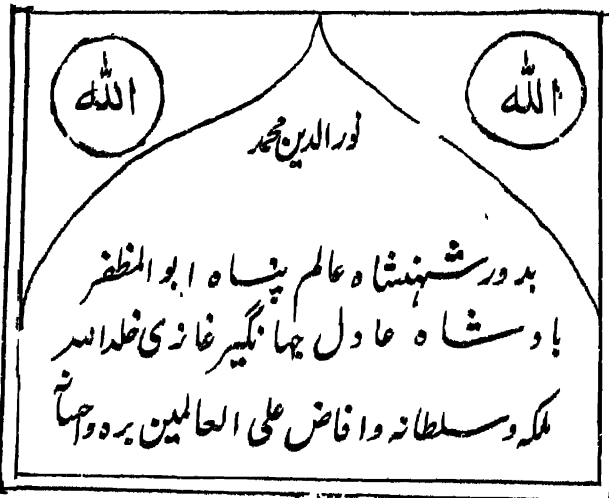 الله
الله
نور الدین محمد
بدور شهنشاه عالم پناه ابو المظفر
بادشاه عادل جهانگیر غازی خلد الله
ملکه و سلطانه و افاض علی العالمین بره و احسانه